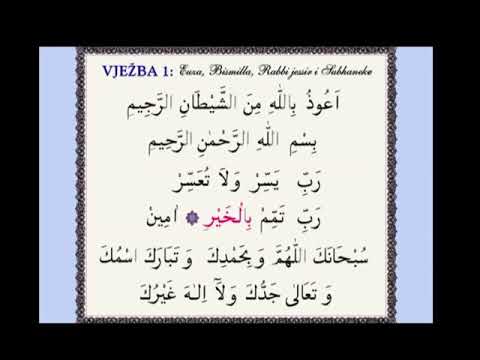 VJEŽBA 1: Euza, Bismilla, Rabbi jessir i Subhaneke
اَعُوذُ بِاللّٰهِ مِنَ الشَّيْطَانِ الرَّجِيمِ
بِسْمِ اللّٰهِ الرَّحْمٰنِ الرَّحِيمِ
رَبِّ يَسِّرْ وَلَا تُعَسِّرْ
رَبِّ تَمِّمْ بِالْخَيْرِ ۞ اٰمِينْ
سُبْحَانَكَ اللّٰهُمَّ وَبِحَمْدِكَ وَتَبَارَكَ اسْمُكَ
وَتَعَالٰى جَدُّكَ وَلَٓا اِلٰهَ غَيْرُكَ